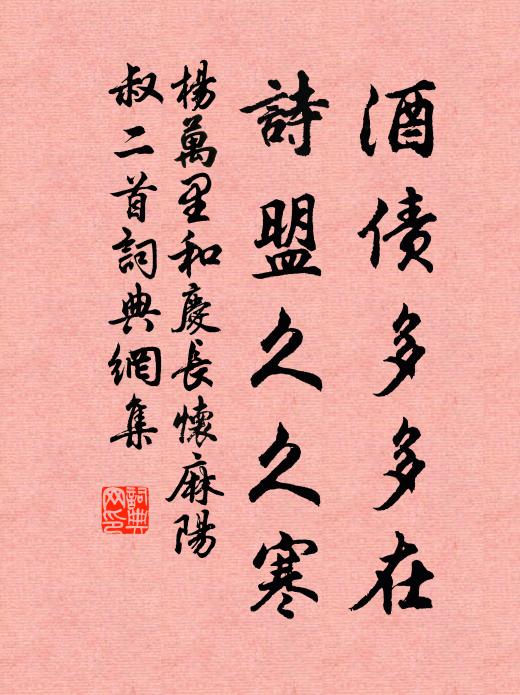 酒债多多在
詩盟久久寒
楊萬里和慶長懷麻陽
叔二首詞典網集
詞典
网印